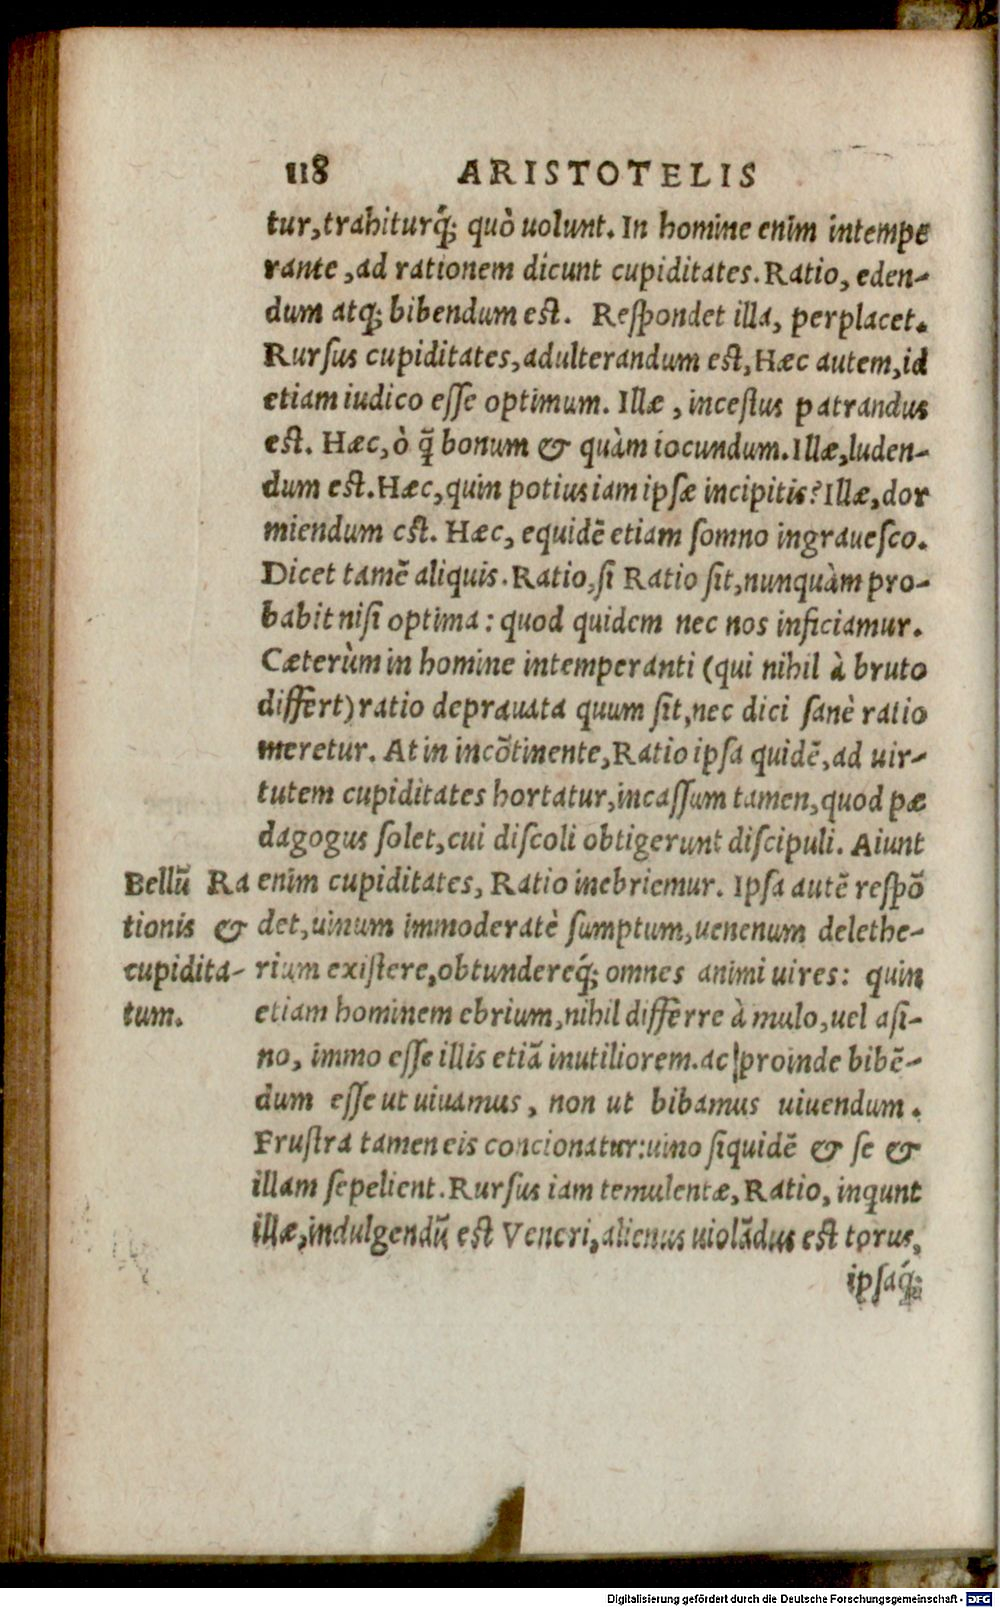 118 ARISTOTELIS
tur,trahiturq́; quò uolunt. In homine enim intempe
rante, ad rationem dicunt cupiditates. Ratio, eden-
dum atq; bibendum est. Respondet illa, perplacet.
Rursus cupiditates, adulterandum est, Hæc autem, id
etiam iudico esse optimum. Illæ, incestus patrandus
est. Hæc, ò q̃ bonum & quàm iocundum. Illæ, luden-
dum est. Hæc, quin potius iam ipsæ incipitis? Illæ, dor
miendum est. Hæc, equidē etiam somno ingrauesco.
Dicet tamē aliquis. Ratio, si Ratio sit, nunquàm pro-
babit nisi optima: quod quidem nec nos inficiamur.
Cæterùm in homine intemperanti (qui nihil à bruto
differt) ratio deprauata quum sit, nec dici sanè ratio
meretur. At in incōtinente, Ratio ipsa quidē, ad uir-
tutem cupiditates hortatur, incassum tamen, quod pæ
dagogus solet, cui discoli obtigerunt discipuli. Aiunt
Bellū Ra
tionis &
cupidita-
tum.
enim cupiditates, Ratio inebriemur. Ipsa autē respō
det, uinum immoderatè sumptum, uenenum delethe-
rium existere, obtundereq́; omnes animi uires: quin
etiam hominem ebrium, nihil differre à mulo, uel asi-
no, immo esse illis etiā inutiliorem. ac proinde bibē-
dum esse ut uiuamus, non ut bibamus uiuendum.
Frustra tamen eis concionatur: uino siquidē & se &
illam sepelient. Rursus iam temulentæ, Ratio, inqunt
illæ, indulgendū est Veneri, alienus uiolādus est torus,
ipsaq́;
Digitalisierung gefördert durch die Deutsche Forschungsgemeinschaft - DFG